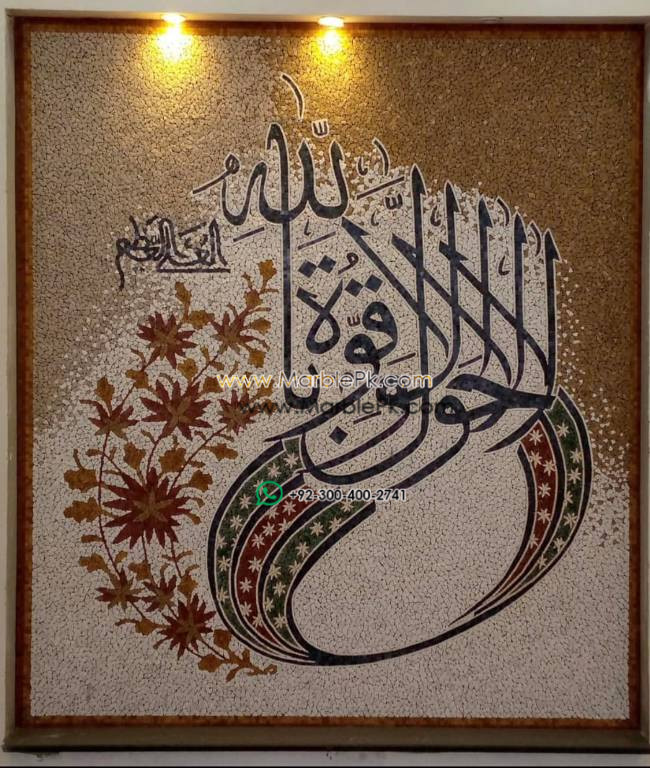 لا حول ولا قوة إلا بالله
العلي العظيم
www.MarblePk.com
www.MarblePk.com
+92-300-400-2741